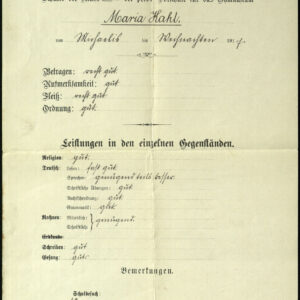 Maria Hahl.
von Michaelis bis Weihnachten 19
Betragen: recht gut.
Aufmerksamkeit: gut.
Fleiß: recht gut.
Ordnung: gut.
Leistungen in den einzelnen Gegenständen.
Religion: gut.
Deutsch: Lesen: fast gut
Sprechen: genügend teils besser.
Schriftliche Übungen: gut.
Rechtschreibung: gut.
Grammatik: gut.
Rechnen: Mündlich:
Schriftliche: } genügend.
Erdkunde:
Schreiben: gut
Gesang: gut.
Bemerkungen.
Schulbesuch: